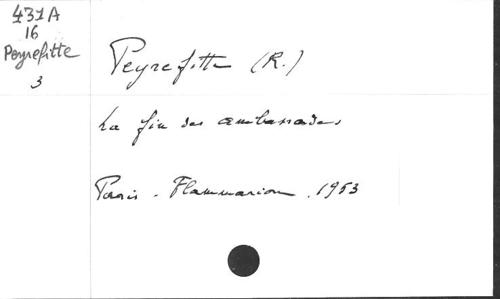 431A
16
Peyrefitte
3
Peyrefitte (R.)
La fin des ambassades
Paris. Flammarion. 1953